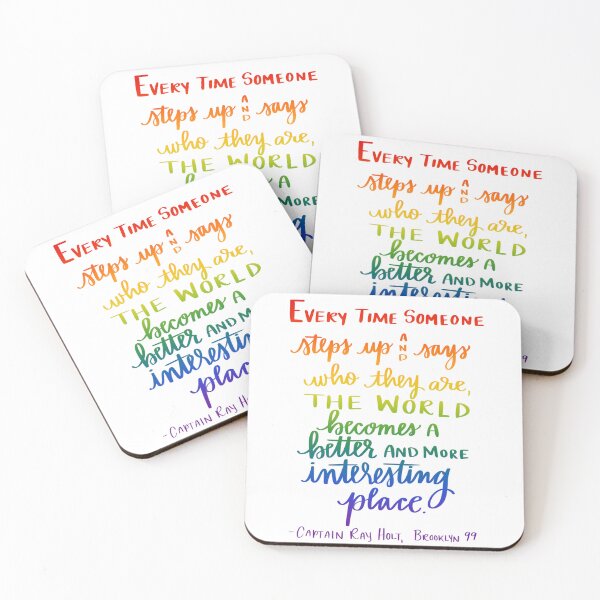 EVERY TIME SOMEONE
steps up AND says
who they are,
THE WORLD
becomes A
AND MORE
EVERY TIME SOMEONE
steps up AND says
who they are,
THE WORLD
becomes A
better AND MORE
interesting
99
EVERY TIME SOMEONE
steps up AND says
who they are,
THE WORLD
becomes A
better AND MO
interesting
place
-CAPTAIN RAY H
EVERY TIME SOMEONE
steps up AND says
who they are,
THE WORLD
becomes A
better AND MORE
interesting
place.
-CAPTAIN RAY HOLT, BROOKLYN 99